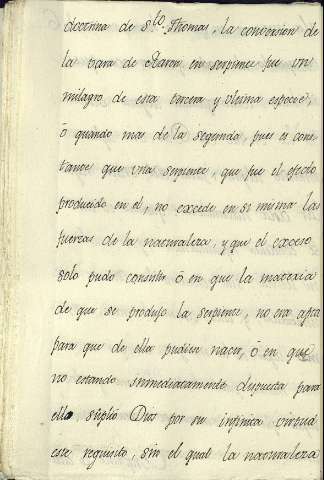 doctrina de S.to Thomas, la conversion de
la vara de Aaron en serpiente fue un
milagro de esta tercera y ultima especie,
ó quando mas de la segunda, pues es cons-
tante que una serpiente, que fue el efecto
producido en el, no excede en si misma las
fuerzas de la naturaleza, y que el exceso
solo pudo consistir ó en que la materia
de que se produjo la serpiente, no era apta
para que de ella pudiese nacer, ó en que
no estando immediatamente dispuesta para
ello, suplió Dios por su infinita virtud
este requisito, sin el qual la naturaleza